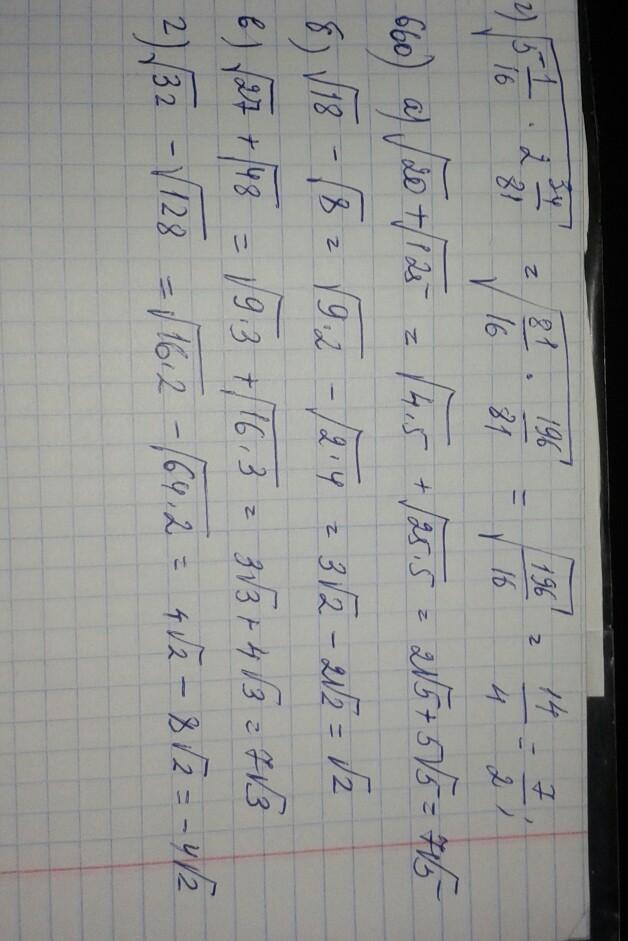 г) √(5 1/16 · 2 34/81) = √(81/16 · 196/81) = √(196/16) = 14/4 = 7/2;
660) а) √20 + √125 = √4·5 + √25·5 = 2√5 + 5√5 = 7√5
б) √18 - √8 = √9·2 - √2·4 = 3√2 - 2√2 = √2
в) √27 + √48 = √9·3 + √16·3 = 3√3 + 4√3 = 7√3
г) √32 - √128 = √16·2 - √64·2 = 4√2 - 8√2 = -4√2